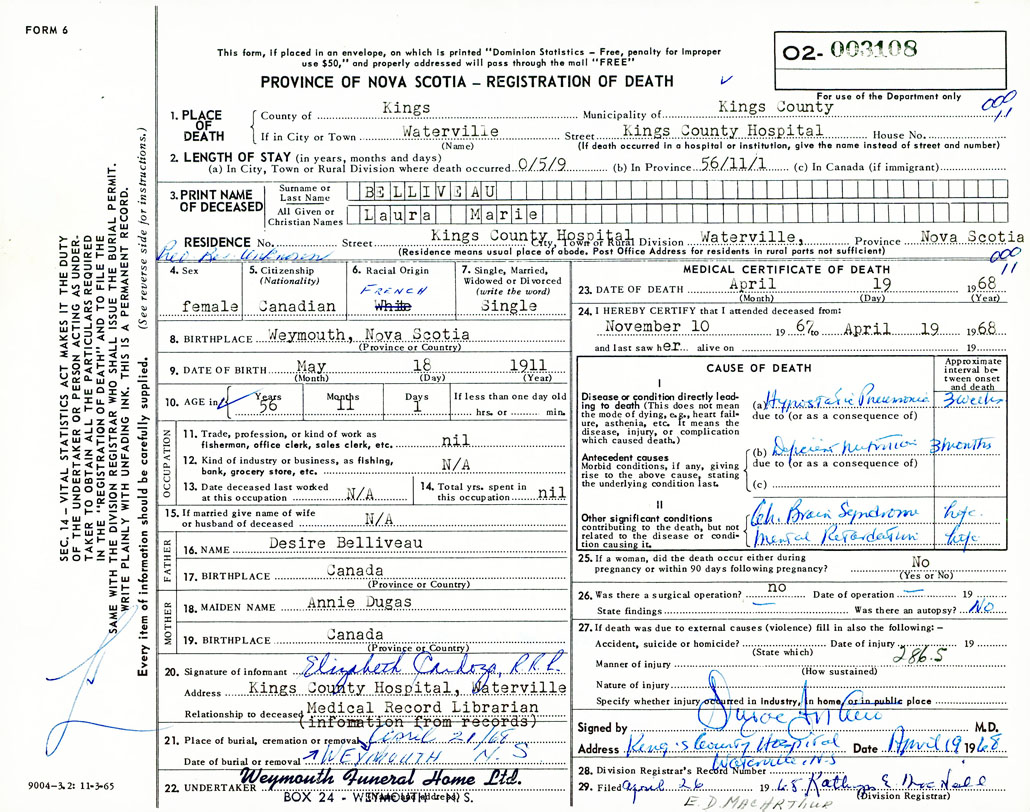 FORM 6
This form, if placed in an envelope, on which is printed "Dominion Statistics – Free, penalty for improper
use $50," and properly addressed will pass through the mail "FREE"
O2- 003108
PROVINCE OF NOVA SCOTIA – REGISTRATION OF DEATH
For use of the Department only
000
11
1. PLACE OF DEATH
County of Kings Municipality of Kings County
If in City or Town Waterville Street Kings County Hospital House No.
(Name) (If death occurred in a hospital or institution, give the name instead of street and number)
2. LENGTH OF STAY (in years, months and days)
(a) In City, Town or Rural Division where death occurred 0/5/9 (b) In Province 56/11/1 (c) In Canada (if immigrant)
3. PRINT NAME OF DECEASED
Surname or Last Name BELLIVEAU
All Given or Christian Names Laura Marie
RESIDENCE No. Street Kings County Hospital City, Town or Rural Division Waterville, Province Nova Scotia
(Residence means usual place of abode. Post Office Address for residents in rural parts not sufficient)
Prev Res. Unknown
000
11
4. Sex
female
5. Citizenship
(Nationality)
Canadian
6. Racial Origin
FRENCH
White
7. Single, Married,
Widowed or Divorced
(write the word)
Single
8. BIRTHPLACE Weymouth, Nova Scotia
(Province or Country)
9. DATE OF BIRTH May 18 1911
(Month) (Day) (Year)
10. AGE in Years Months Days If less than one day old
56 11 1 hrs. or min.
OCCUPATION
11. Trade, profession, or kind of work as
fisherman, office clerk, sales clerk, etc. nil
12. Kind of industry or business, as fishing,
bank, grocery store, etc. N/A
13. Date deceased last worked
at this occupation N/A
14. Total yrs. spent in
this occupation nil
15. If married give name of wife
or husband of deceased N/A
FATHER
16. NAME Desire Belliveau
17. BIRTHPLACE Canada
(Province or Country)
MOTHER
18. MAIDEN NAME Annie Dugas
19. BIRTHPLACE Canada
(Province or Country)
20. Signature of informant Elizabeth Cardoza, R.R.L.
Address Kings County Hospital, Waterville
Relationship to deceased Medical Record Librarian
(infomation from records)
21. Place of burial, cremation or removal April 21/68
Date of burial or removal WEYMOUTH N.S
22. UNDERTAKER Weymouth Funeral Home Ltd.
BOX 24 - WEYMOUTH N. S.
MEDICAL CERTIFICATE OF DEATH
23. DATE OF DEATH April 19 1968
(Month) (Day) (Year)
24. I HEREBY CERTIFY that I attended deceased from:
November 10 1967 to April 19 1968
and last saw her alive on 19
CAUSE OF DEATH
Approximate interval between onset and death
I
Disease or condition directly leading to death (This does not
mean the mode of dying, e.g., heart failure, asthenia, etc. It means the
disease, injury, or complication
which caused death.)
(a) Hypostatic Pneumonia 3 weeks
due to (or as a consequence of)
Antecedent causes
Morbid conditions, if any, giving
rise to the above cause, stating
the underlying condition last.
(b) Deficient Nutrition 3 months
due to (or as a consequence of)
(c)
II
Other significant conditions
contributing to the death, but not
related to the disease or condition causing it.
Ch. Brain Syndrome life
Mental Retardation life
25. If a woman, did the death occur either during
pregnancy or within 90 days following pregnancy? No
(Yes or No)
26. Was there a surgical operation? no Date of operation — 19
State findings — Was there an autopsy? No
27. If death was due to external causes (violence) fill in also the following:–
Accident, suicide or homicide? Date of injury 19
(State which)
286.5
Manner of injury
(How sustained)
Nature of injury
Specify whether injury occurred in Industry, in home, or in public place
Signed by M.D.
Address King's County Hospital Date April 19 1968
Waterville N.S
28. Division Registrar's Record Number
29. Filed April 26 1968
(Division Registrar)
E. D. MACARTHUR
SEC. 14 – VITAL STATISTICS ACT MAKES IT THE DUTY
OF THE UNDERTAKER OR PERSON ACTING AS UNDER-
TAKER TO OBTAIN ALL THE PARTICULARS REQUIRED
IN THE "REGISTRATION OF DEATH" AND TO FILE THE
SAME WITH THE DIVISION REGISTRAR WHO SHALL ISSUE THE BURIAL PERMIT.
WRITE PLAINLY WITH UNFADING INK. THIS IS A PERMANENT RECORD.
Every item of information should be carefully supplied. (See reverse side for instructions.)
9004-3.2: 11-3-65